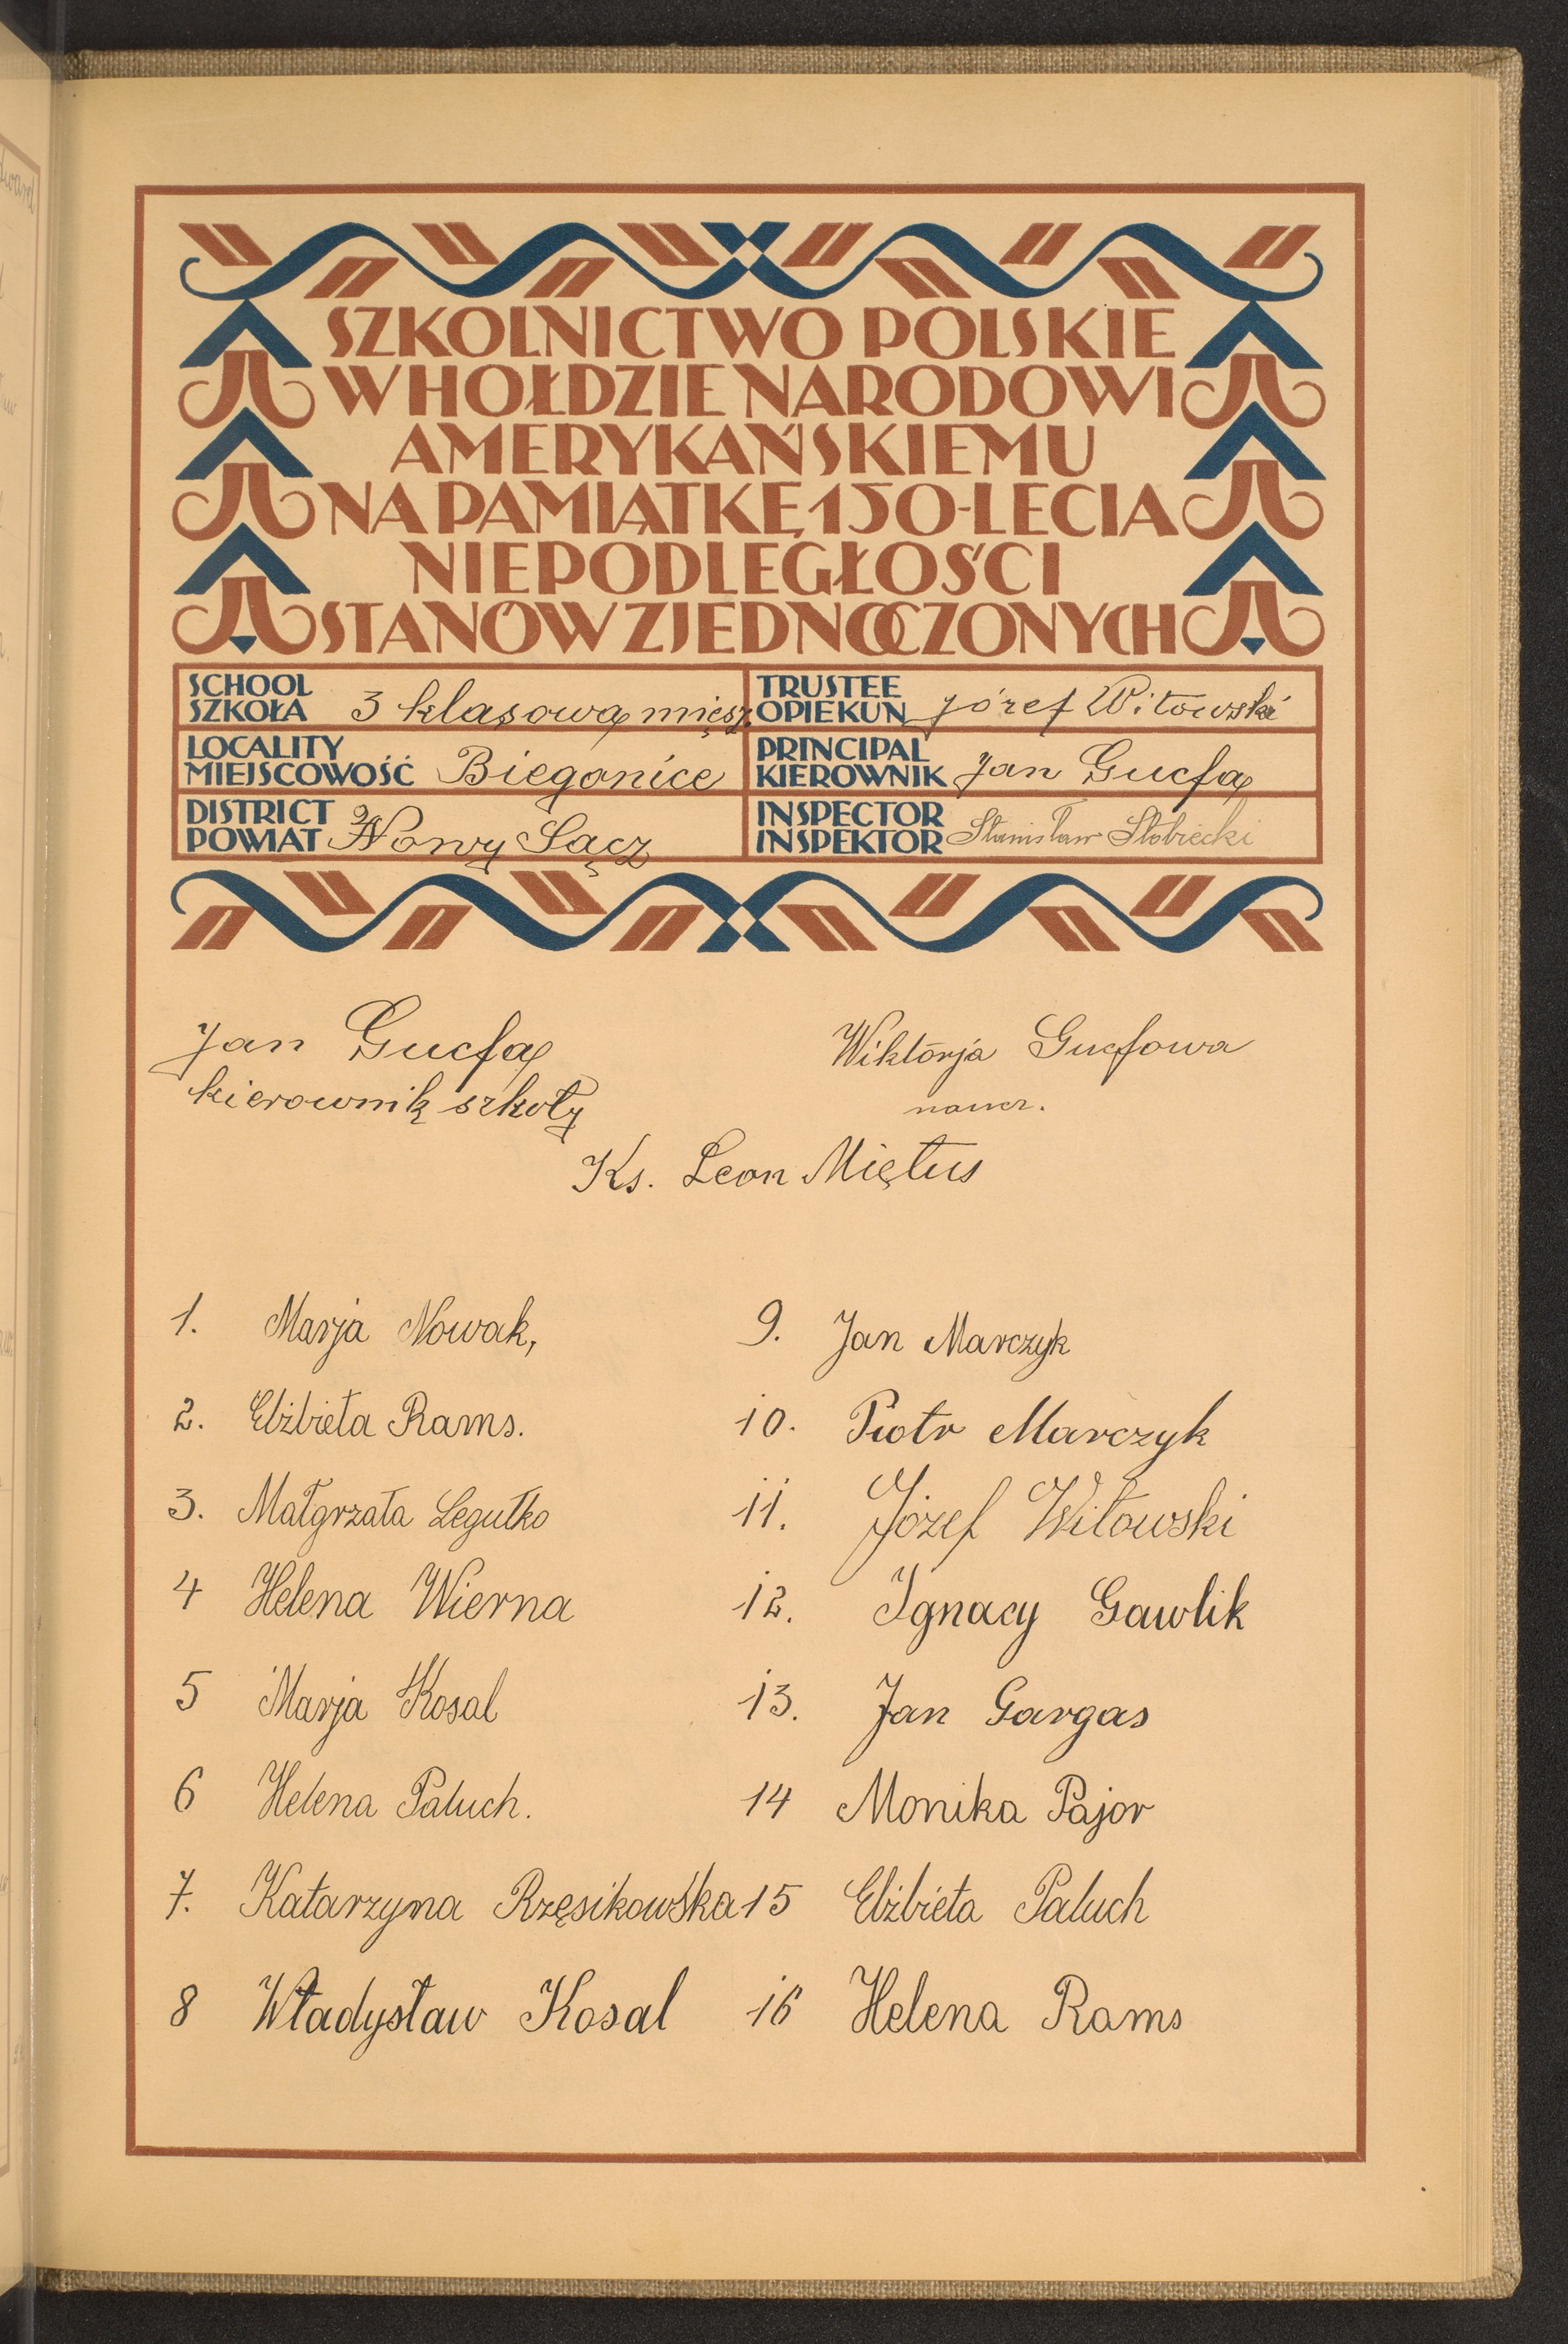 SZKOLNICTWO POLSKIE
W HOŁDZIE NARODOWI
AMERYKAŃSKIEMU
NA PAMIĄTKĘ 150-LECIA
NIEPODLEGŁOŚCI
STANÓW ZJEDNOCZONYCH
SCHOOL
SZKOŁA 3 klasowa miesz.
TRUSTEE
OPIEKUN Józef Witowski
LOCALITY
MIEJSCOWOŚĆ Biegonice
PRINCIPAL
KIEROWNIK Jan Gucfa
DISTRICT
POWIAT Nowy Sącz
INSPECTOR
INSPEKTOR Stanisław Słobiecki
Jan Gucfa
kierownik szkoły
Wiktorja Gucfowa
naucz.
Ks. Leon Miętus
1. Marja Nowak,
2. Elżbieta Rams.
3. Małgrzata Legutko
4 Helena Wierna
5 Marja Kosal
6 Helena Paluch.
7. Katarzyna Rzęsikowska
8 Władysław Kosal
9. Jan Marczyk
10. Piotr Marczyk
11. Józef Witowski
12. Ignacy Gawlik
13. Jan Gargas
14 Monika Pajor
15 Elżbieta Paluch
16 Helena Rams